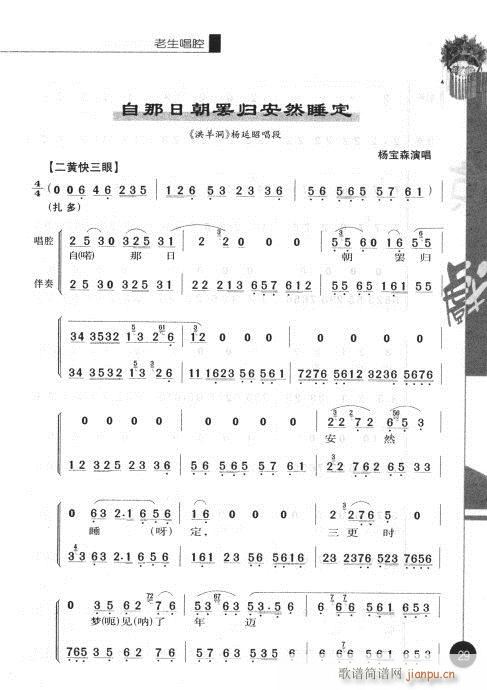 老生唱腔
自那日朝罢归安然睡定
《洪羊洞》杨延昭唱段
杨宝森演唱
【二黄快三眼】
4/4 ( 0 0 6 4 6 2 3 5 | 1 2 6 5 3 2 3 2 3 6 | 5 6 5 6 5 5 7 6 1 )
(扎 多)
唱腔 2 5 3 0 3 2 5 3 1 | 2 2 0 0 0 | 5 5 6 0 1 6 5 5
自(喏) 那 日 朝 罢 归
伴奏 2 5 3 0 3 2 5 3 1 | 2 2 2 1 3 6 5 7 6 1 2 | 5 1 6 5 6 1 6 5 5
3 4 3 5 3 2 1 3 2 6 | 1 2 0 0 0 | 0 0 0 0
3 4 3 5 3 2 1 3 2 6 | 1 1 1 6 2 3 5 6 5 6 1 | 7 2 7 6 5 6 1 2 3 2 3 6 5 6 7 6
0 0 0 0 | 0 0 0 0 | 2 2 7 2 6 5 3
安 然
1 2 3 2 5 2 3 6 | 1 2 6 5 3 2 5 6 1 | 2 2 7 6 2 6 5 3
0 6 3 2·1 6 5 6 | 1 6 0 0 0 | 0 0 2 2 7 6 5
睡 (呀) 定, 三 更 时
3 3 6 3 2·1 6 5 6 | 1 6 1 2 3 5 6 5 6 1 | 2 3 2 3 7 6 5 2 3 7 6 5 6
0 3 5 6 2 7 6 | 5 3 6 7 2·1 5 6 | 1 0 0 0
梦(呃)见(呐)了 年 迈
7 6 5 3 5 6 2 7 6 | 5 3 6 7 2·1 5 6 | 1 6 7 5 6 1 6 5 3
29
歌谱简谱网
jianpu.cn